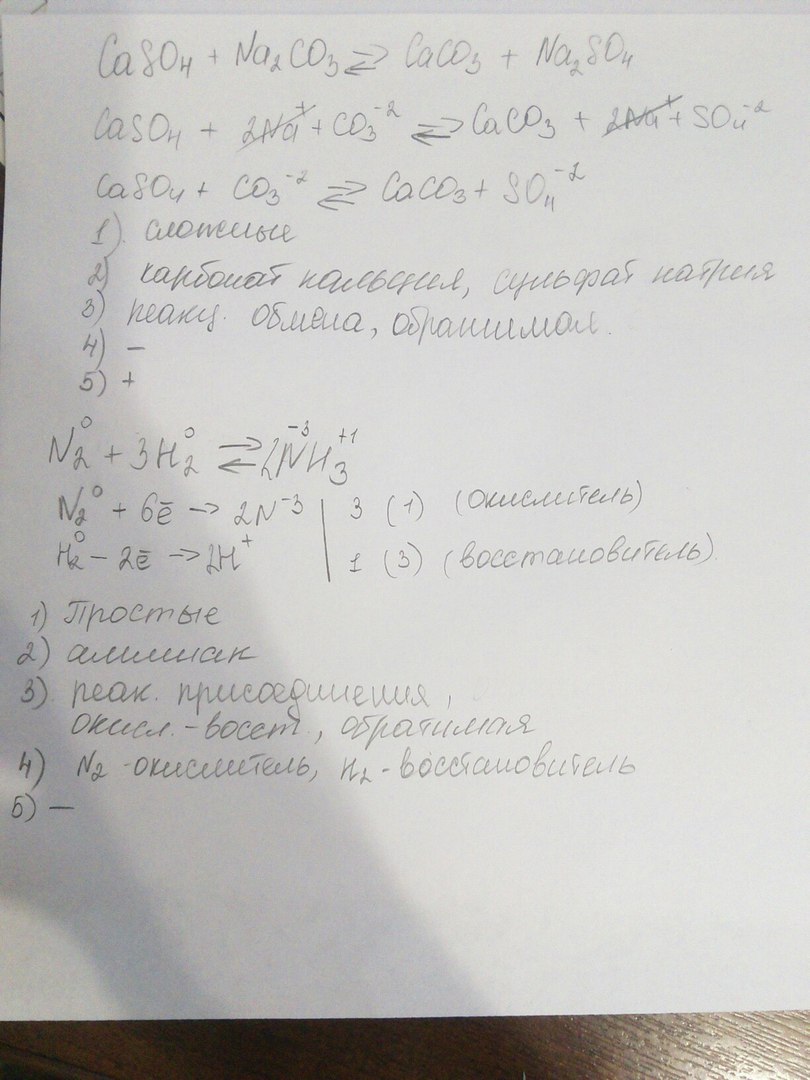 CaSO₄ + Na₂CO₃ ⇄ CaCO₃ + Na₂SO₄
CaSO₄ + 2Na⁺ + CO₃⁻² ⇄ CaCO₃ + 2Na⁺ + SO₄⁻²
CaSO₄ + CO₃⁻² ⇄ CaCO₃ + SO₄⁻²
1) сложные
2) карбонат кальция, сульфат натрия
3) реакц. обмена, обратимая.
4) –
5) +
N₂⁰ + 3H₂⁰ ⇄ 2N⁻³H₃⁺¹
N₂⁰ + 6ē → 2N⁻³ | 3 (1) (окислитель)
H₂⁰ – 2ē → 2H⁺ | 1 (3) (восстановитель)
1) Простые
2) аммиак
3) реак. присоединения,
окисл.-восст., обратимая
4) N₂ - окислитель, H₂ - восстановитель
5) –